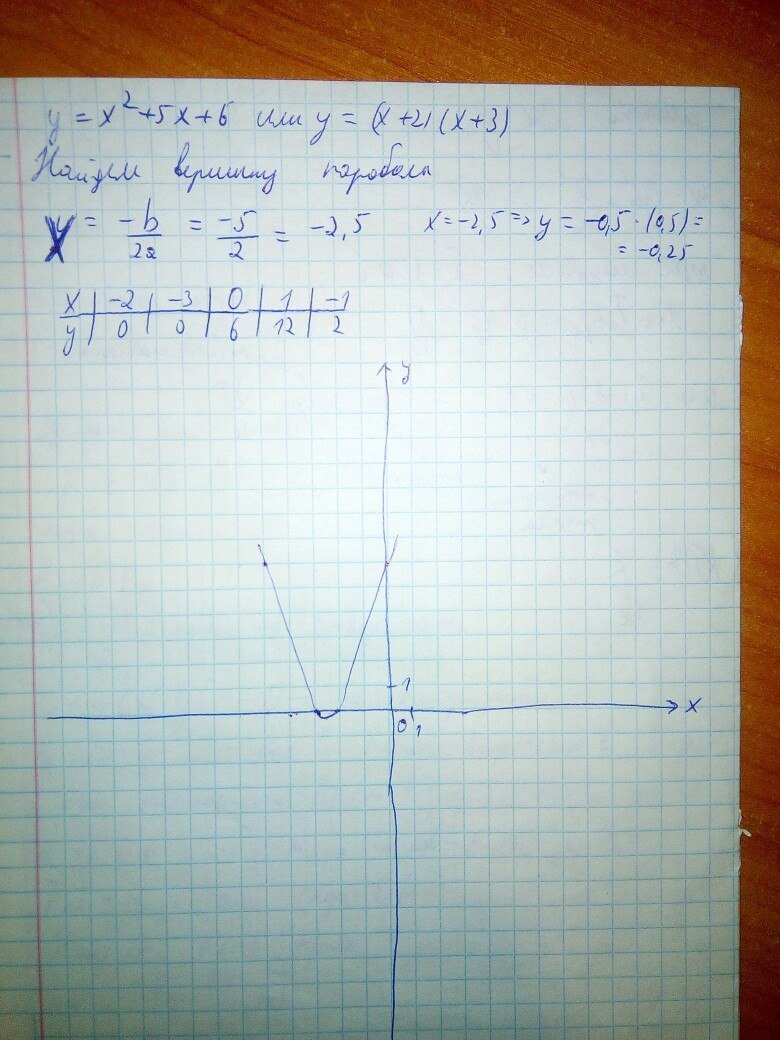 y = x²+5x+6 или y = (x+2)(x+3)
Найдем вершину параболы
x = -b/2a = -5/2 = -2,5 x=-2,5 => y = -0,5·(0,5)=
= -0,25
x | -2 | -3 | 0 | 1 | -1
y | 0 | 0 | 6 | 12 | 2
y
1
x
0 1